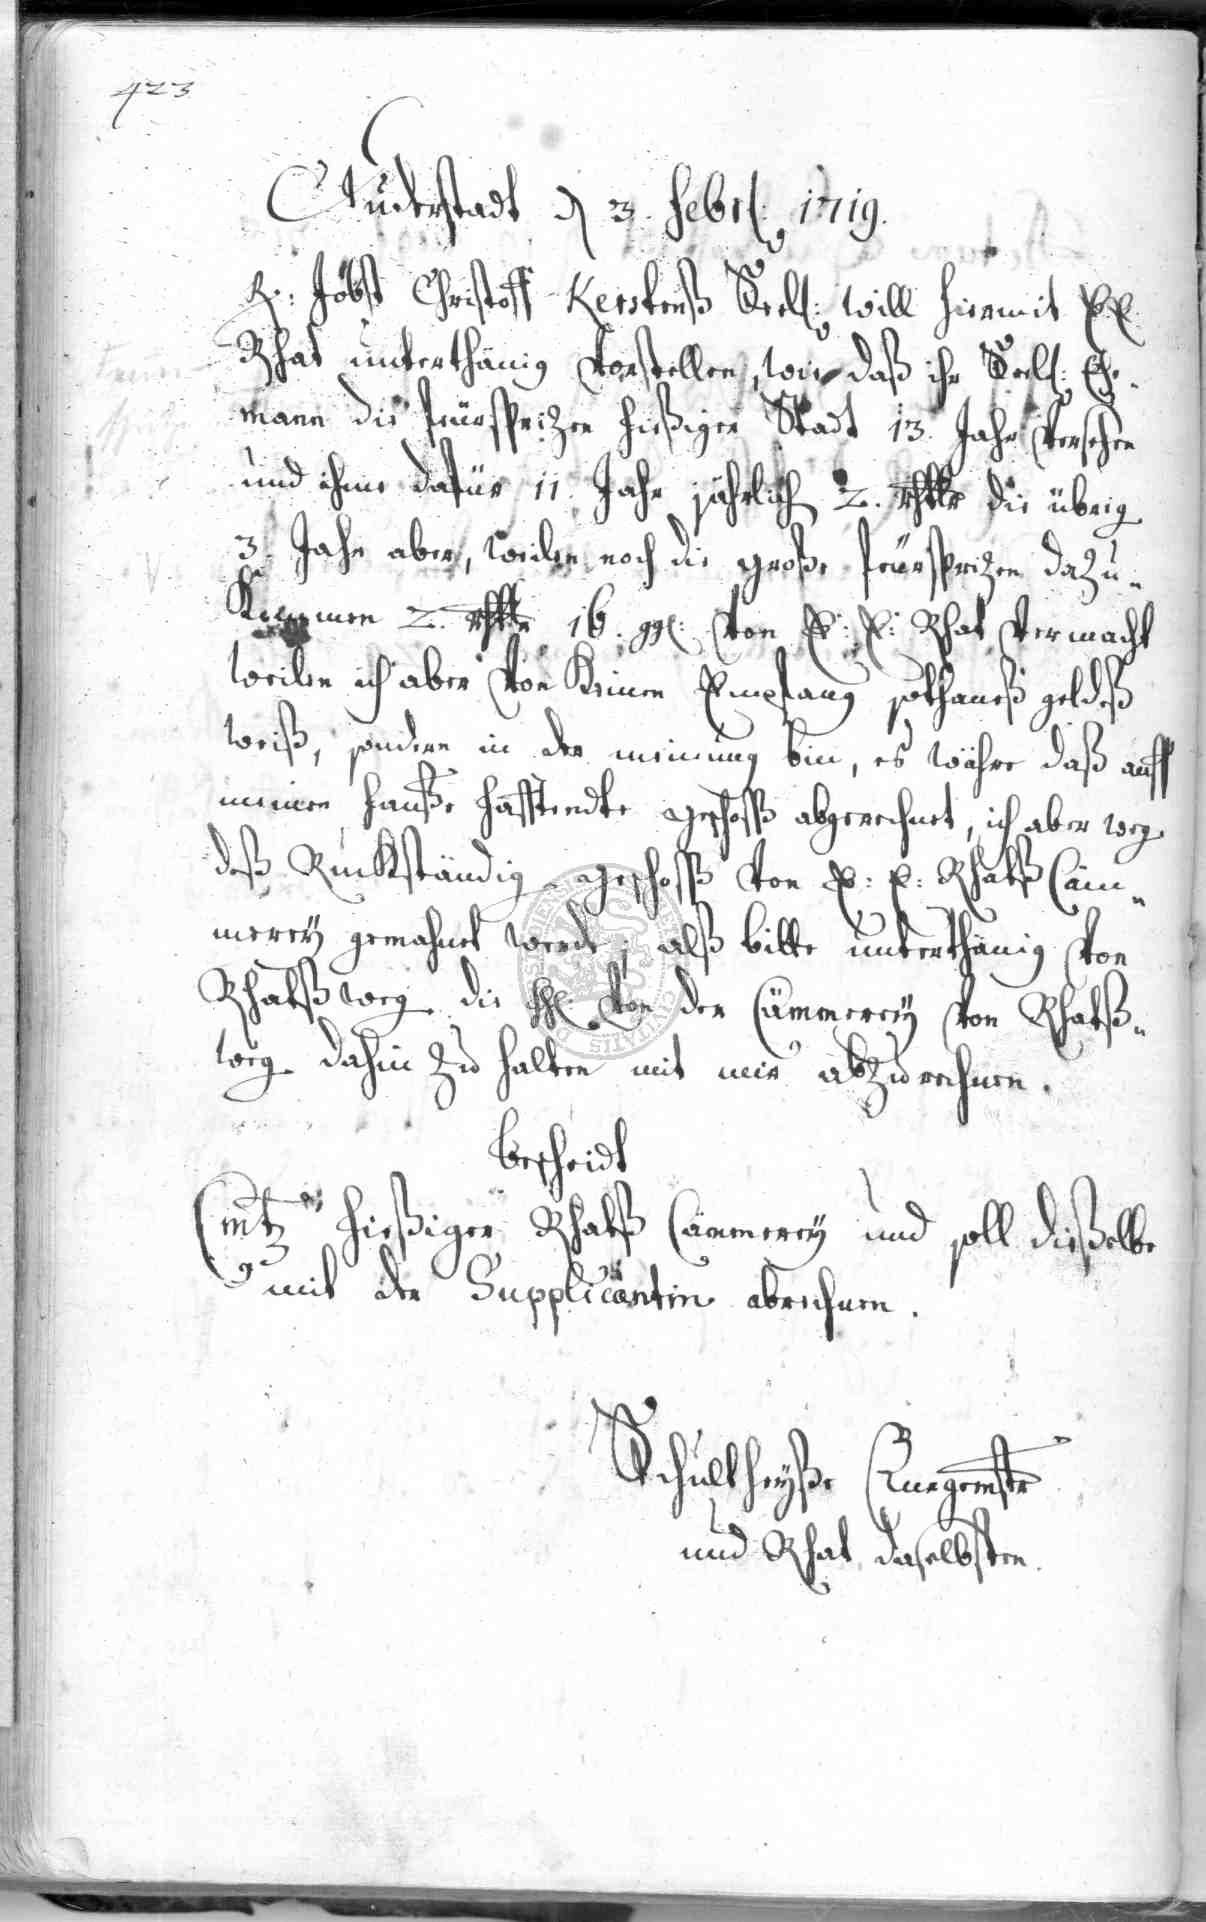 423
Duderstadt d 3. Febrl: 1719.
Jobst Christoff Kerstenß Seel: will hiermit E. E.
Rhat unterthänig vorstellen, wie daß ihr Seel: Ehe-
mann die feürsprizen hießiger Stadt 13. Jahr versehen
und ihme dafür 11. Jahr jährlich 2. rthlr die übrig
3. Jahr aber, weilen noch die große feürsprizen dazu-
Kommen 2. rthlr 16. ggl: von E: E: Rhat vermacht
weilen ich aber von Keinen Empfang sothaneß geldeß
weiß, sondern in der meinung bin, es währe daß auff
meinen hauße hafftendte geschoß abgerechnet, ich aber weg
deß Rückständig geschoß von E: E: Rhatß Cäm-
merey gemahnet werde; alß bitte unterthänig von
Rhatß weg die von der Cämmerey von Rhatß-
weg dahin zu halten mit mir abzurechnen.
bescheidt
hießiger Rhatß Cämmerey und soll dießelbe
mit der Supplicantin abrechnen.
Schultheyße Burgemstr
und Rhat daselbsten.